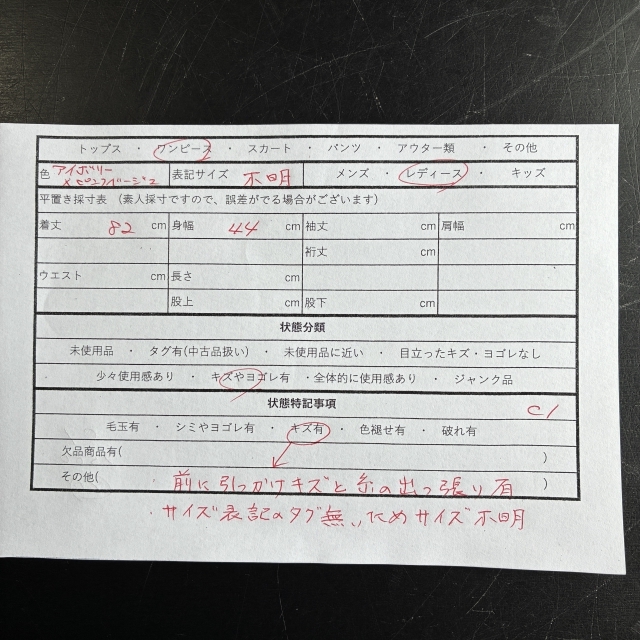 トップス ・ ワンピース ・ スカート ・ パンツ ・ アウター類 ・ その他
色 アイボリー×ピンクベージュ 表記サイズ 不明 メンズ ・ レディース ・ キッズ
平置き採寸表 (素人採寸ですので、誤差がでる場合がございます)
着丈 82 cm 身幅 44 cm 袖丈 cm 肩幅 cm
裄丈 cm
ウエスト cm 長さ cm
股上 cm 股下 cm
状態分類
未使用品 ・ タグ有(中古品扱い) ・ 未使用品に近い ・ 目立ったキズ・ヨゴレなし
少々使用感あり ・ キズやヨゴレ有 ・全体的に使用感あり ・ ジャンク品
状態特記事項 C1
毛玉有 ・ シミやヨゴレ有 ・ キズ有 ・ 色褪せ有 ・ 破れ有
欠品商品有( )
その他( 前に引っかけキズと糸の出っ張り有 )
・サイズ表記のタグ無いためサイズ不明